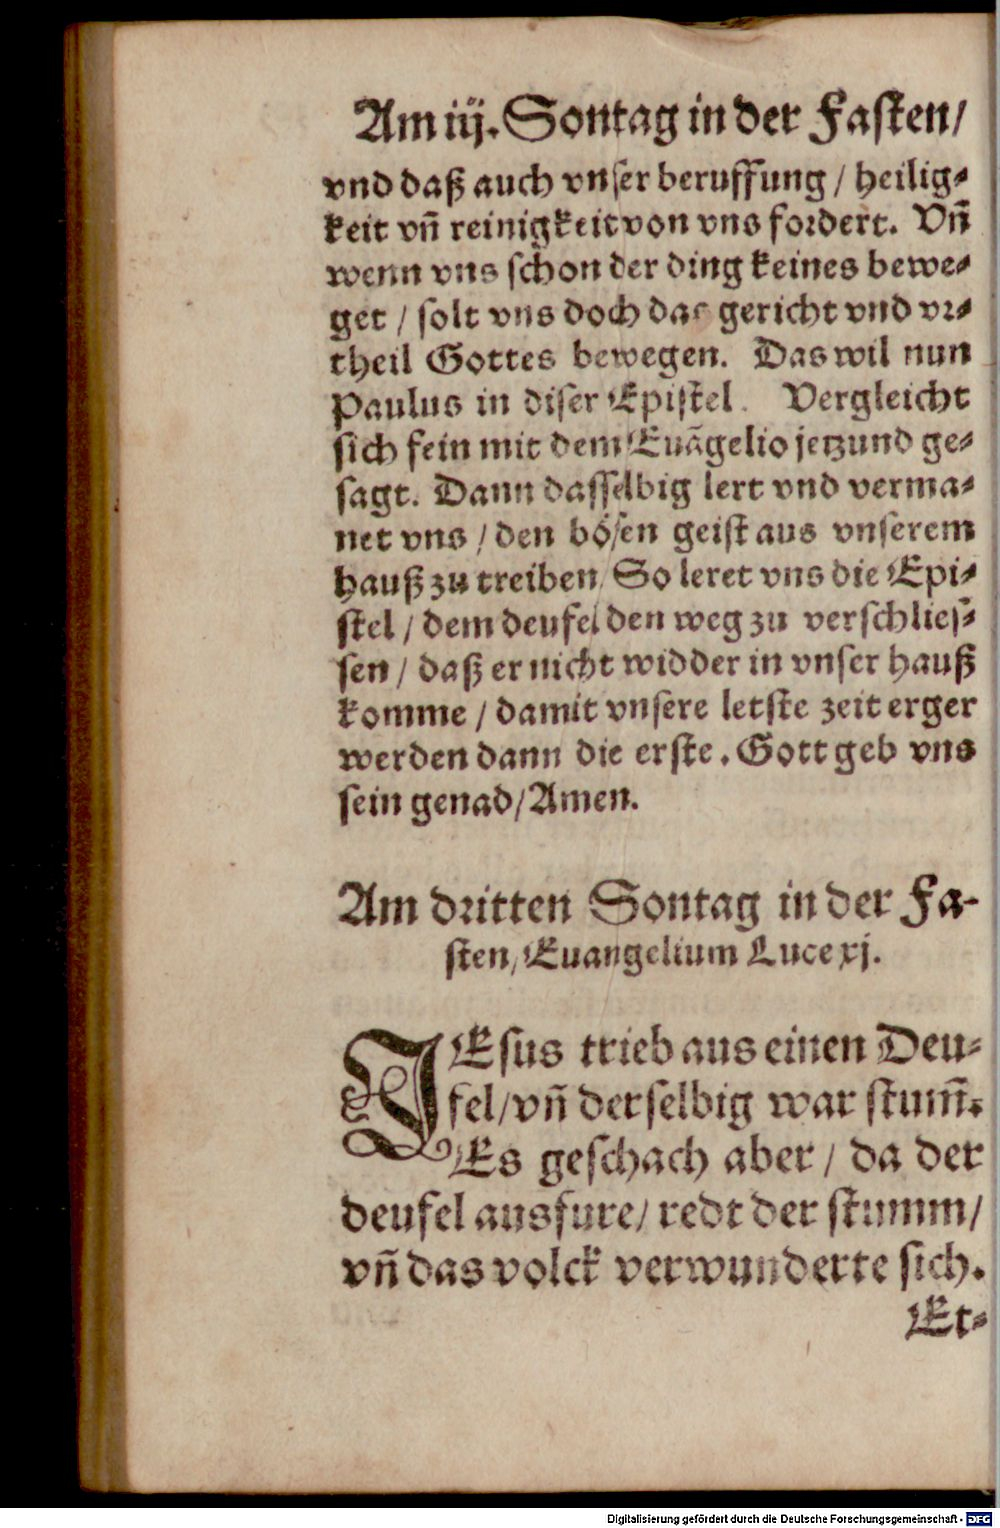 Am iij. Sontag in der Fasten/
vnd daß auch vnser beruffung / heilig⸗
keit vñ reinigkeit von vns fordert. Vñ
wenn vns schon der ding keines bewe⸗
get / solt vns doch das gericht vnd vr⸗
theil Gottes bewegen. Das wil nun
Paulus in diser Epistel. Vergleicht
sich fein mit dem Euãgelio jetzund ge⸗
sagt. Dann dasselbig lert vnd verma⸗
net vns / den bösen geist aus vnserem
hauß zu treiben/ So leret vns die Epi⸗
stel / dem deufel den weg zu verschlies⸗
sen / daß er nicht widder in vnser hauß
komme / damit vnsere letste zeit erger
werden dann die erste. Gott geb vns
sein genad/ Amen.
Am dritten Sontag in der Fa-
sten/ Euangelium Luce xj.
JEsus trieb aus einen Deu⸗
fel/ vñ derselbig war stum̃.
Es geschach aber / da der
deufel ausfure/ redt der stumm/
vñ das volck verwunderte sich.
Et⸗
Digitalisierung gefördert durch die Deutsche Forschungsgemeinschaft - DFG